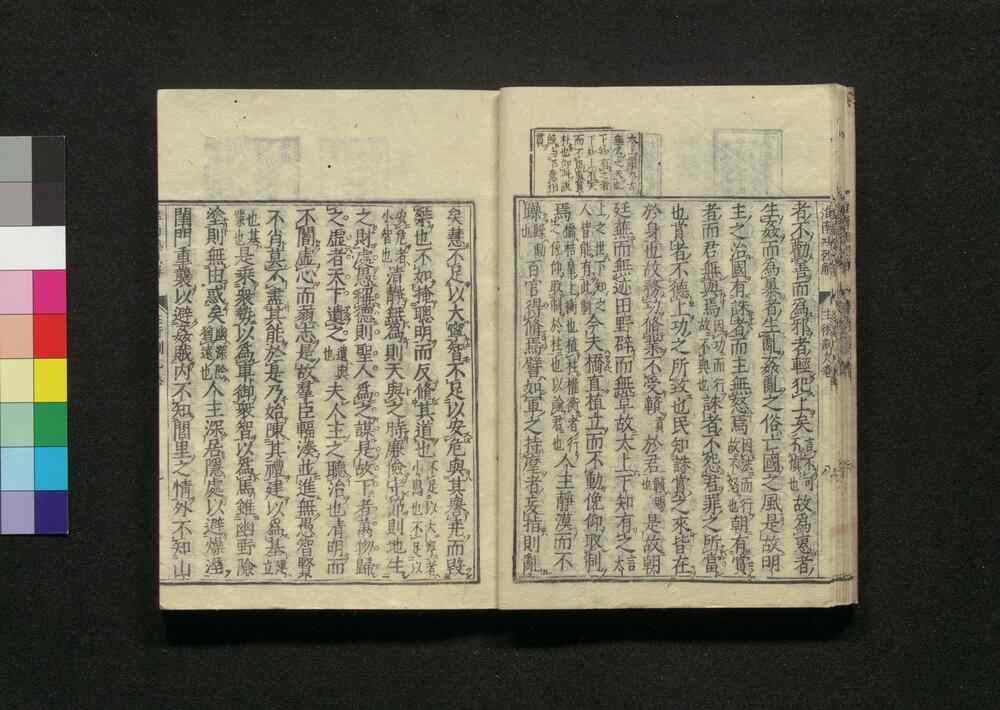 者不勸善而為邪者輕犯上矣故為惠者
生姦而為暴者生亂姦亂之俗亡國之風是故明
主之治國有誅者而主無怒焉因法而行故不怒也朝有賞
者而君無與焉因功而行故不與也誅者不怨君罪之所當
也賞者不德上功之所致也民知誅賞之來皆在
於身也故務功修業不受贛於君贛賜也是故朝
廷蕪而無迹田野辟而無草故太上下知有之言太
上之世下知之人皆能有此術今夫橋直植立而不動俛仰取制
焉人主靜漠而不
躁百官得修焉譬如軍之持麾者妄指則亂
矣慧不足以大寧智不足以安危與其譽堯而毀
桀也不如掩聰明而反修其道也不足以大寧者小惠也不足以
安危者小智也清靜無為則天與之時廉儉守節則地生
之財處愚稱德則聖人為之謀是故下者萬物歸
之虛者天下遺之遺與也夫人主之聽治也清明而
不闇虛心而弱志是故羣臣輻湊並進無愚智賢
不肖莫不盡其能於是乃始陳其禮建以為基建立
也基業也是乘衆勢以為車御衆智以為馬雖幽野險
塗則無由惑矣幽深險猶遠也人主深居隱處以避燥濕
閨門重襲以避姦賊內不知閭里之情外不知山